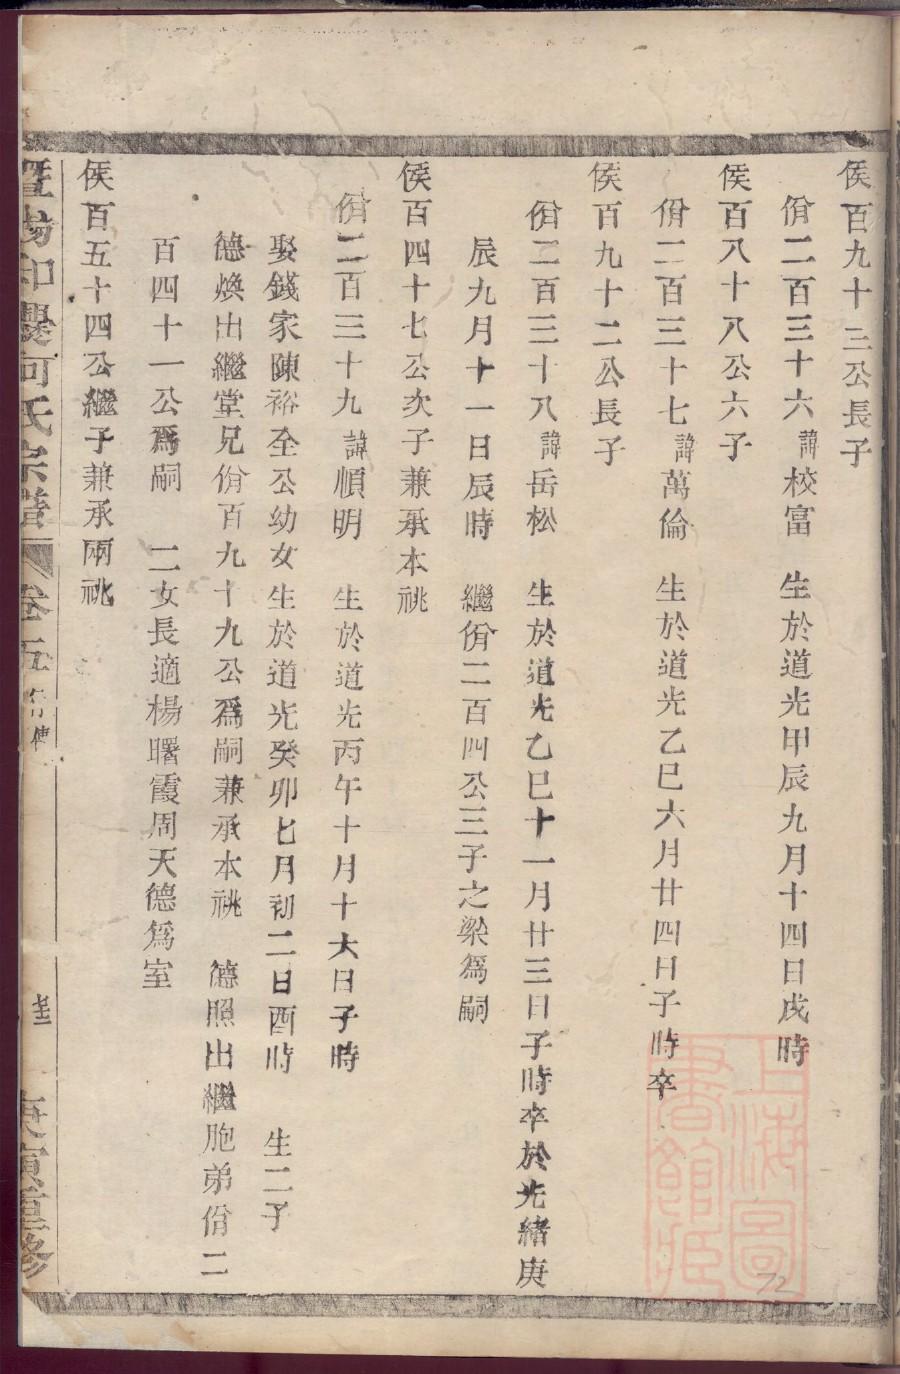 侯百九十三公長子
佾二百三十六諱校富　生於道光甲辰九月十四日戌時
侯百八十八公六子
佾二百三十七諱萬倫　生於道光乙巳六月廿四日子時卒
侯百九十二公長子
佾二百三十八諱岳松　生於道光乙巳十一月廿三日子時卒於光緒庚
辰九月十一日辰時　繼佾二百四公三子之梁爲嗣
侯百四十七公次子兼承本祧
佾二百三十九諱順明　生於道光丙午十月十六日子時
娶錢家陳裕全公幼女生於道光癸卯七月初二日酉時　生二子
德煥出繼堂兄佾百九十九公爲嗣兼承本祧　德照出繼胞弟佾二
百四十一公爲嗣　二女長適楊曙霞周天德爲室
侯百五十四公繼子兼承兩祧
暨陽和爨何氏宗譜　卷五　佾傳　庚寅重修
上海圖書館藏
72